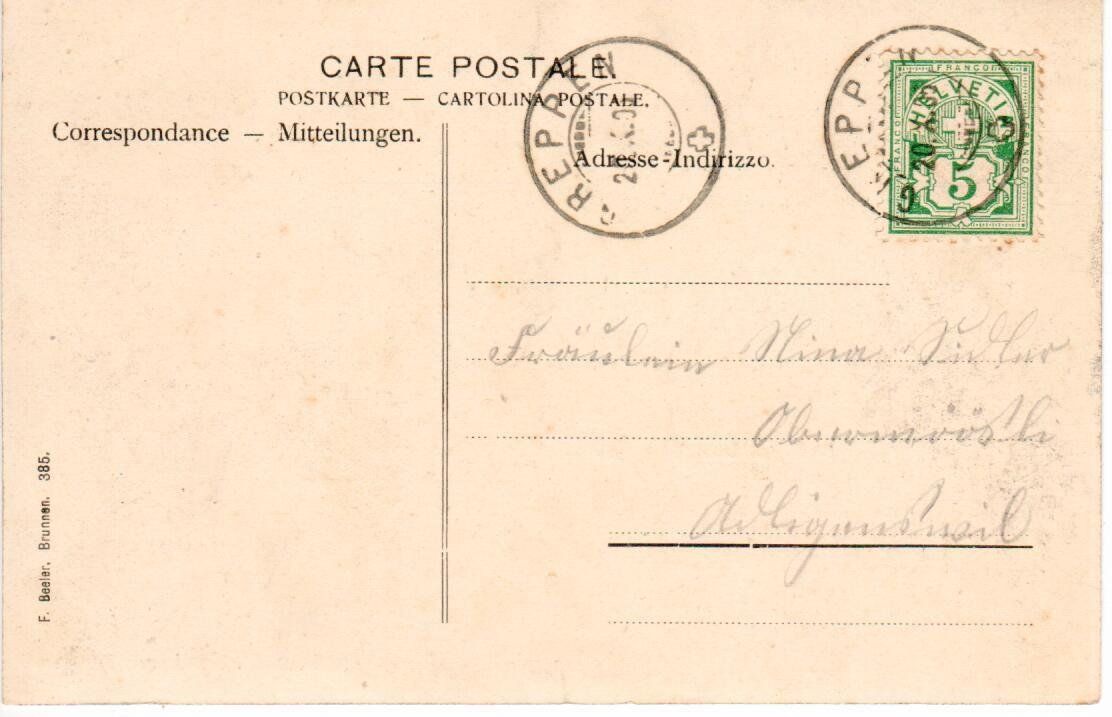 CARTE POSTALE.
POSTKARTE — CARTOLINA POSTALE.
Correspondance — Mitteilungen.
Adresse-Indirizzo.
GREPPEN
GREPPEN
20. X.
FRANCO
HELVETIA
FRANCO
FRANCO
5
Fräulein Nina Sidler
Obermöösli
Adligenswil
F. Beeler, Brunnen. 385.